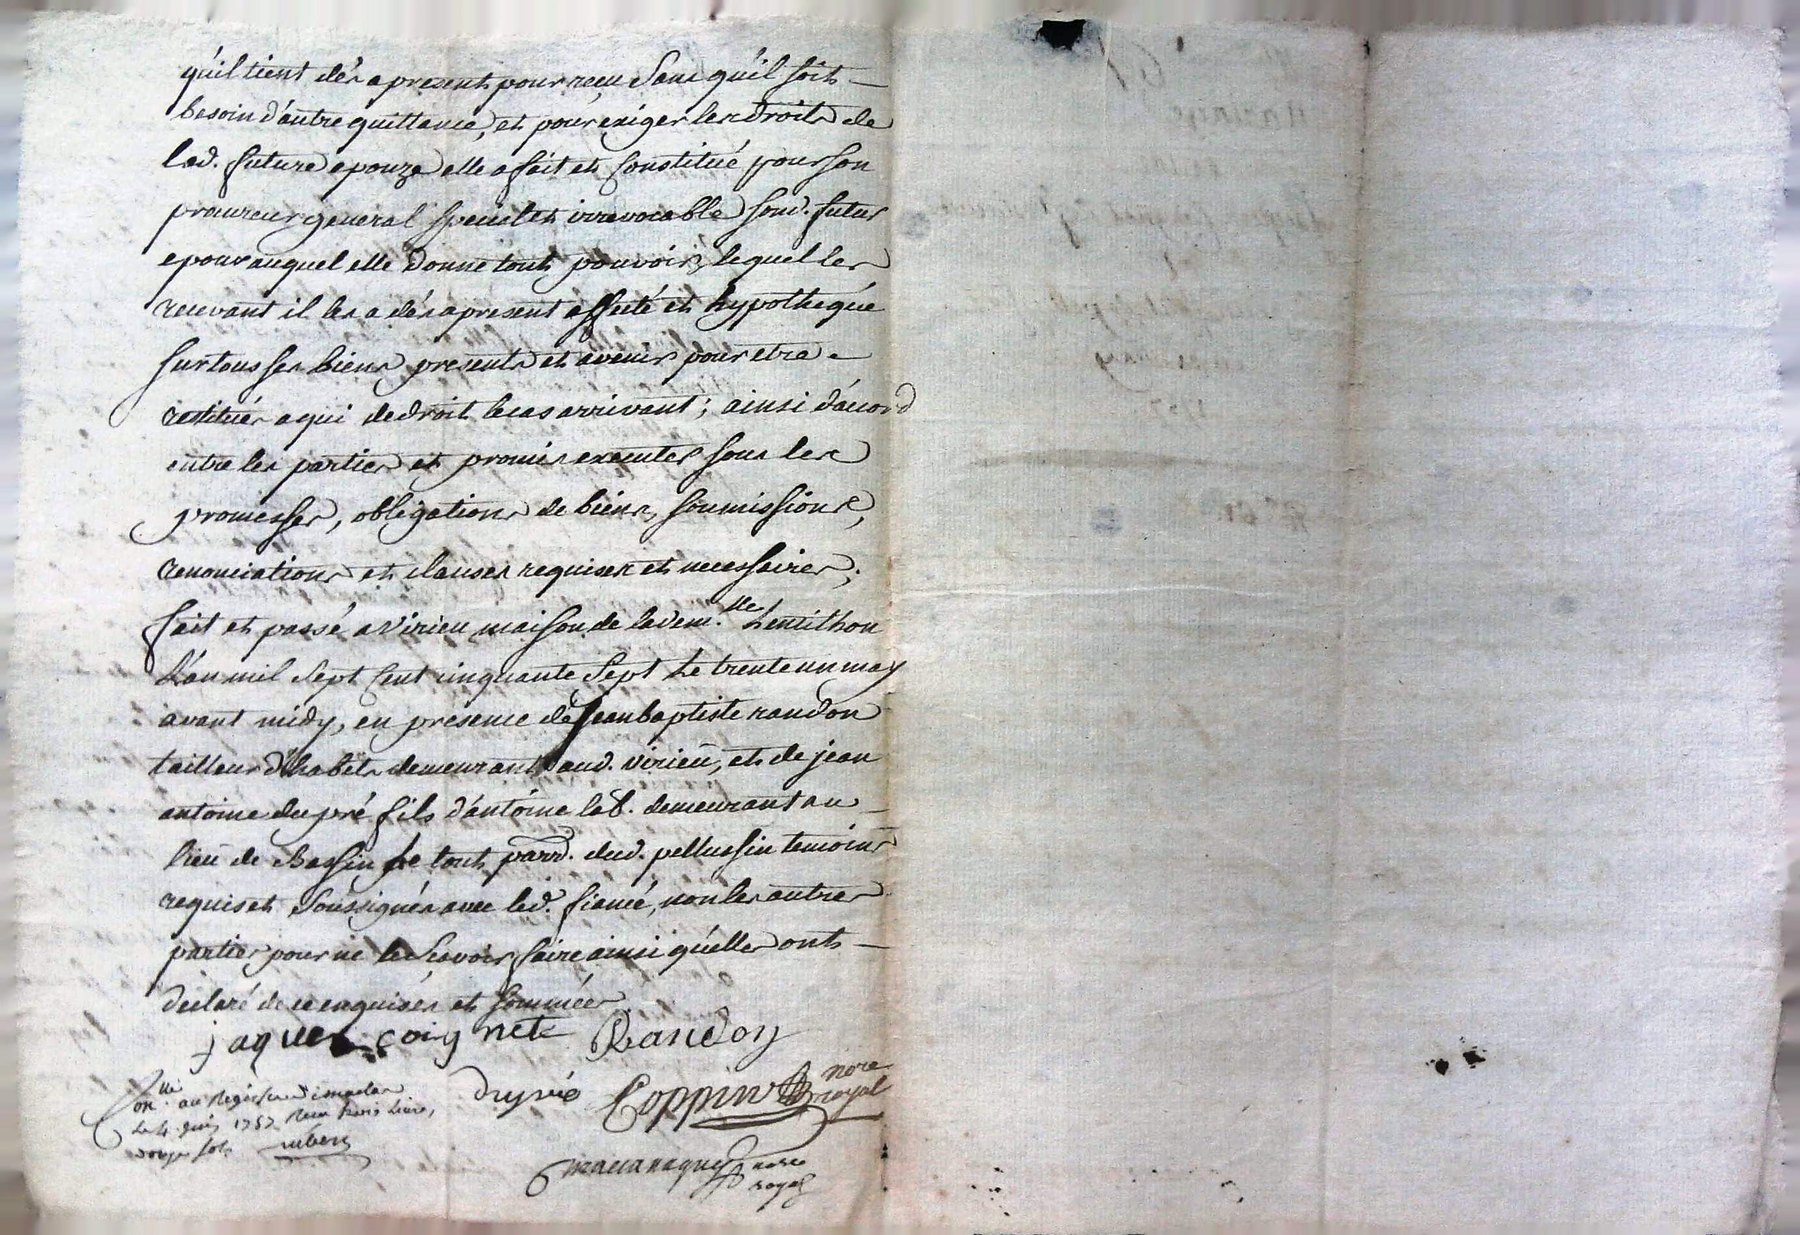 qu'il tient dés a present pour reçu Sans qu'il soit
besoin d'autre quittance, et pour exiger les droits de
lad. future epouze elle a fait et constitué pour son
procureur general special et irrevocable sond. futur
epoux auquel elle donne tout pouvoir, lequel les
recevant il les a dés apresent affecté et hypothequé
sur tous ses biens presents et avenir pour etre
restitués a qui de droit le cas arrivant; ainsi d'accord
entre les parties et promis executer sous les
promesses, obligations de biens, soumissions,
renonciations et clauses requises et necessaires;
fait et passé a Virieu maison de la dem.lle Lentilhon
L'an mil sept cent cinquante sept Le trente un may
avant midy, en presence de Jean baptiste randon
tailleur d'habits demeurant aud. virieu, et de jean
antoine dupré fils d'antoine lab. demeurant au
lieu de chassin tout parr. dud. pellussin temoins
requis et soussignés avec led. fiancé, non les autres
parties pour ne le scavoir faire ainsi qu'elles ont
declaré de ce enquises et sommées
jaques coignet Randon
dupré Coppin nore royal
Con.lle au Registre
Le 4 juin 1757 Reçu trois livres,
douze sols
nore royal